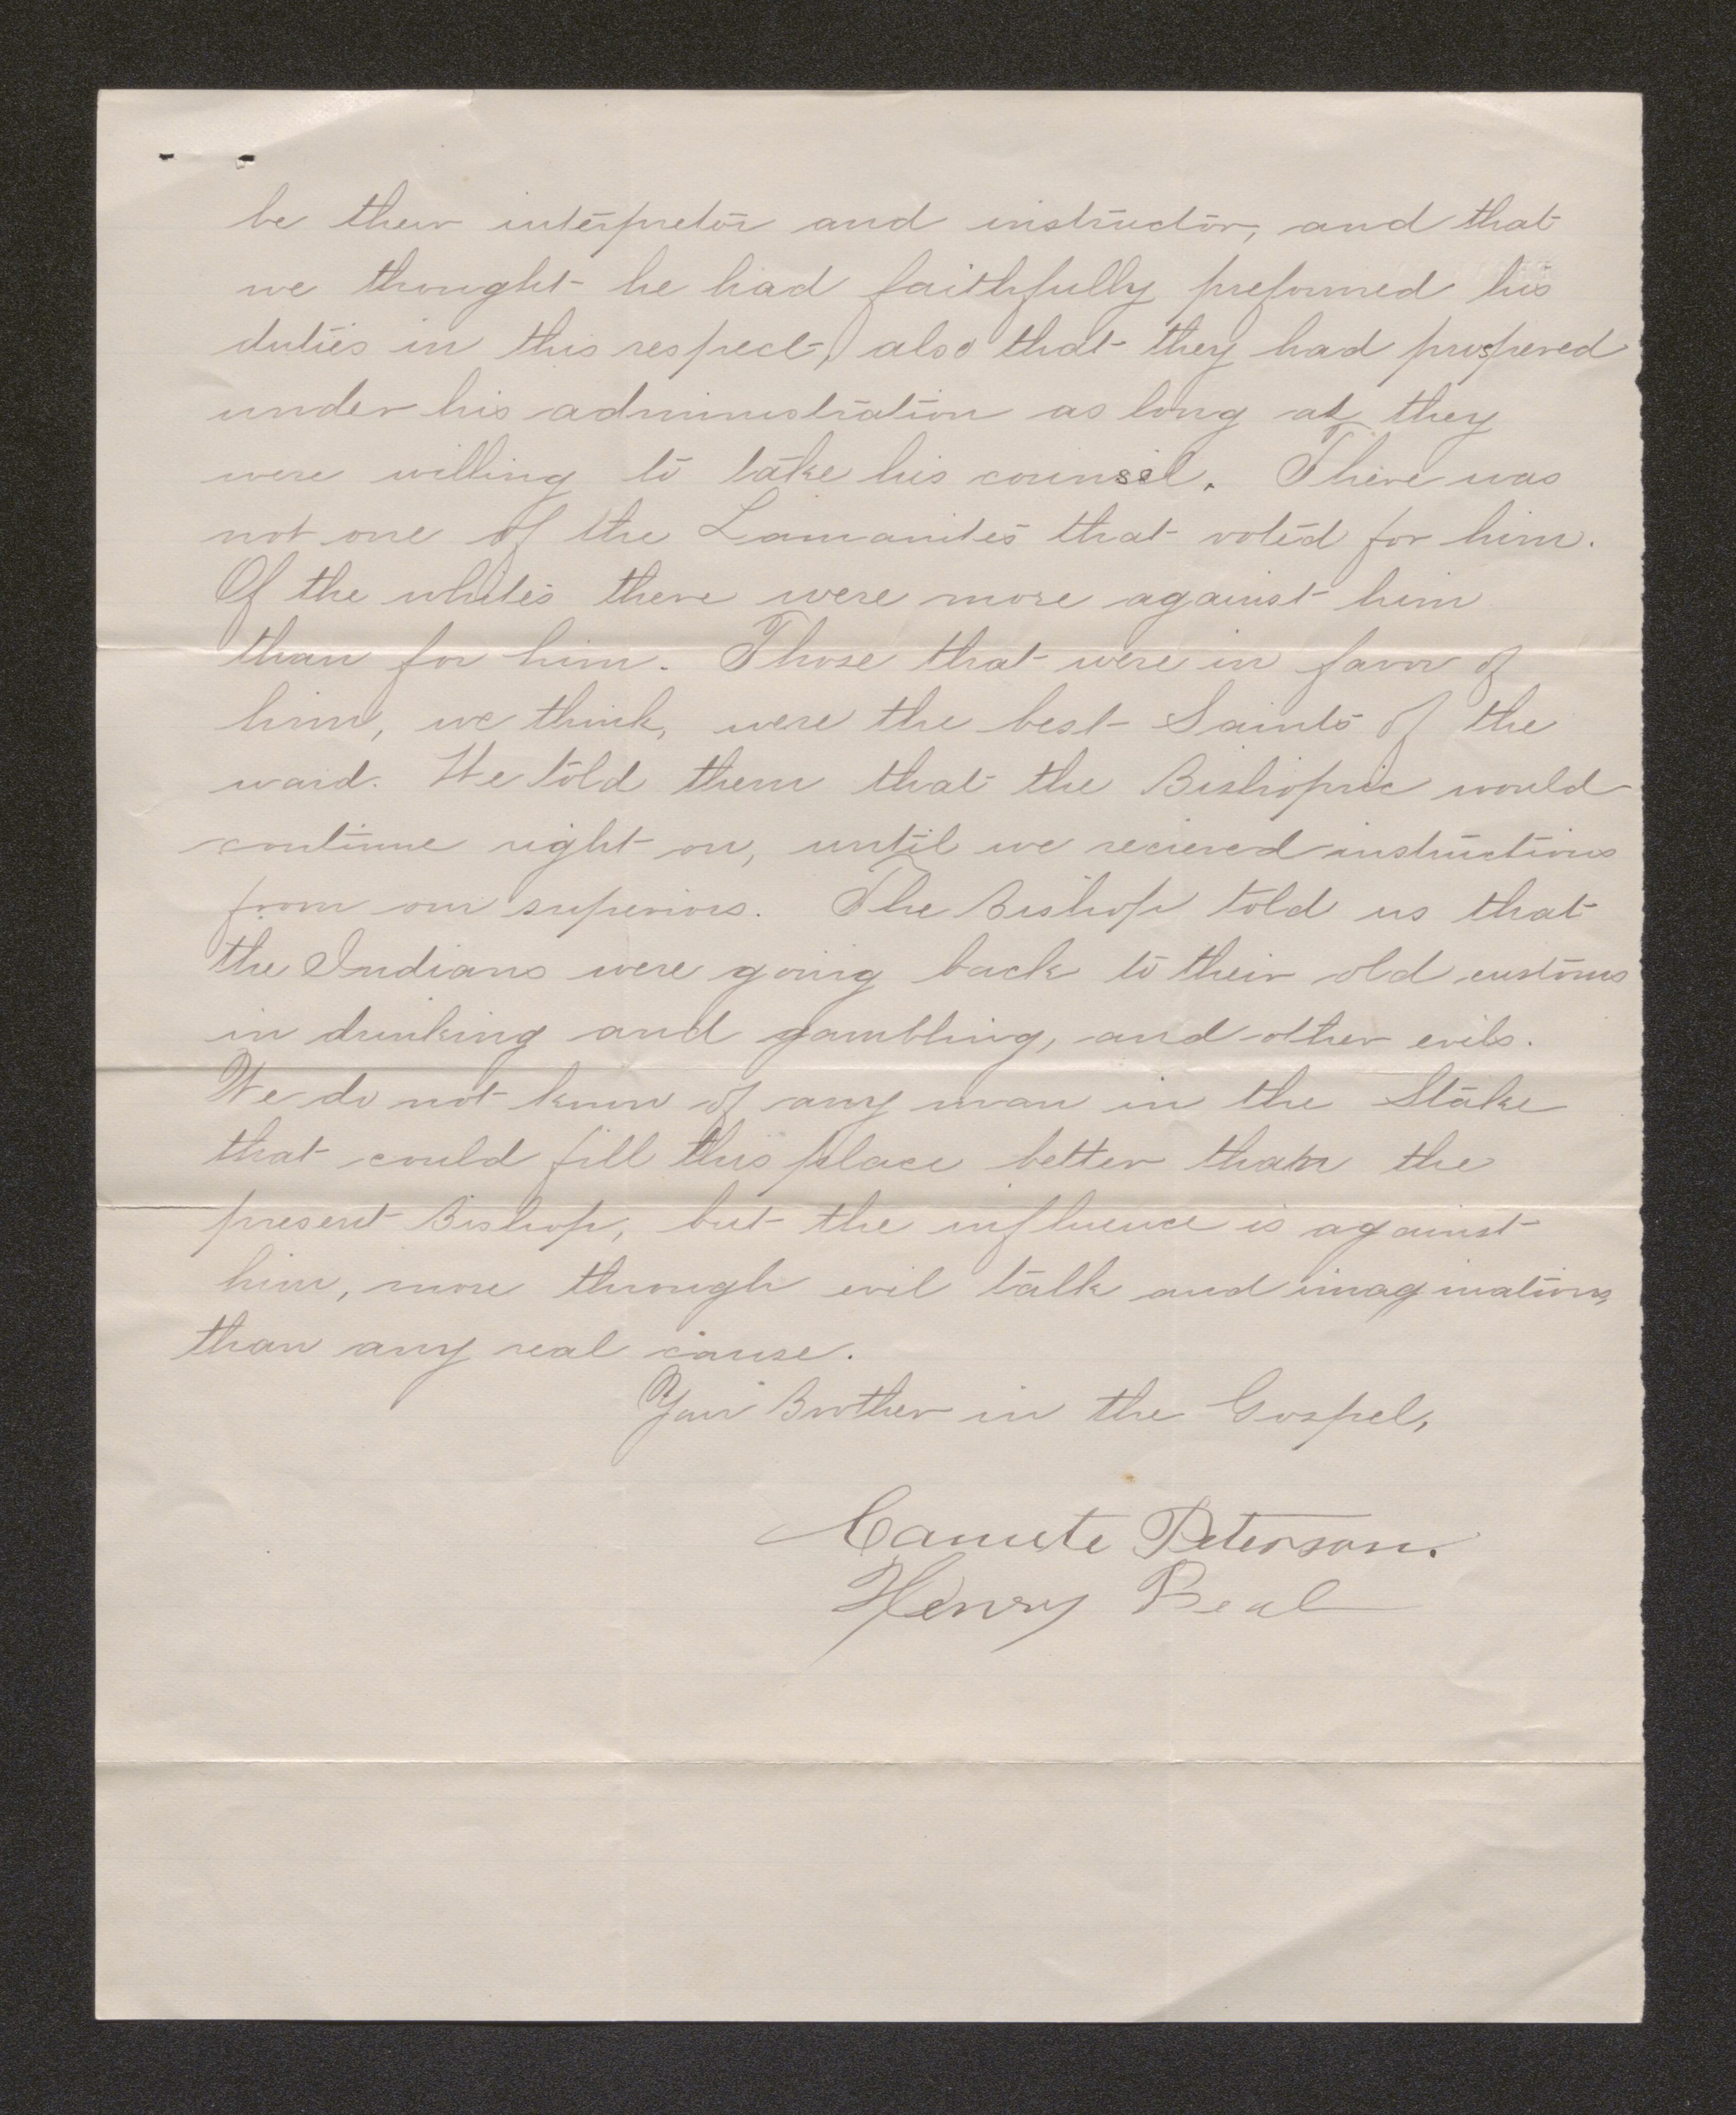 be their interpretor and instructor, and that
we thought he had faithfully preformed his
duties in this respect, also that they had prospered
under his administration as long as they
were willing to take his counsel. There was
not one of the Lamanites that voted for him.
Of the whites there were more against him
than for him. Those that were in favor of
him, we think, were the best Saints of the
ward. We told them that the Bishopric would
continue right on, until we recieved instructions
from our superiors. The Bishop told us that
the Indians were going back to their old customs
in drinking and gambling, and other evils.
We do not know of any man in the Stake
that could fill this place better than the
present Bishop, but the influence is against
him, more through evil talk and imaginations,
than any real cause.
Your Brother in the Gospel,
Canute Peterson.
Henry Beal